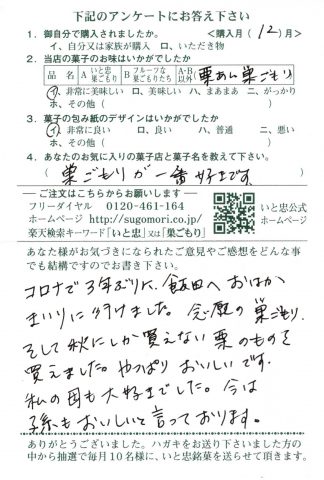 下記のアンケートにお答え下さい
1. 御自分で購入されましたか。 <購入月(12)月>
イ、自分又は家族が購入 ロ、いただき物
2. 当店の菓子のお味はいかがでしたか
品名 A いと忠巣ごもり B フルーツな巣ごもりたち A·B以外 栗あん巣ごもり
イ、非常に美味しい ロ、美味しい ハ、まあまあ ニ、がっかり
ホ、その他( )
3. 菓子の包み紙のデザインはいかがでしたか
イ、非常に良い ロ、良い ハ、普通 ニ、悪い
ホ、その他( )
4. あなたのお気に入りの菓子店と菓子名を教えて下さい。
(巣ごもりが一番好きです。)
ご注文はこちらからお願いします
フリーダイヤル 0120-461-164
ホームページ http://sugomori.co.jp/
楽天検索キーワード「いと忠」又は「巣ごもり」
いと忠公式
ホームページ
あなた様がお気づきになられたご意見やご感想をどんな事
でも結構ですのでお書き下さい。
コロナで3年ぶりに、飯田へおはか
まいりに行けました。念願の巣ごもり、
そして秋にしか買えない栗のものを
買えました。やっぱりおいしいです。
私の母も大好きでした。今は
孫もおいしいと言っております。
ありがとうございました。ハガキをお送り下さいました方の
中から抽選で毎月10名様に、いと忠銘菓を送らせて頂きます。